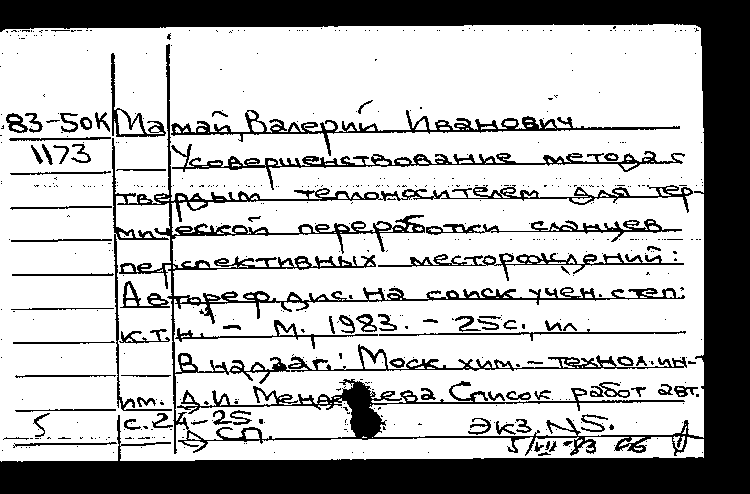 83-50К Мамай, Валерий Иванович.
1173 Усовершенствование метода с
твердым теплоносителем для тер-
мической переработки сланцев
перспективных месторождений:
Автореф. дис. на соиск. учен. степ.
к.т.н. - М., 1983. - 25с., ил.
В надзаг.: Моск. хим.-технол. ин-т
им. Д.И. Менделеева. Список работ авт.:
5 с. 24-25.
СП. Экз. N5.
5/VII-83